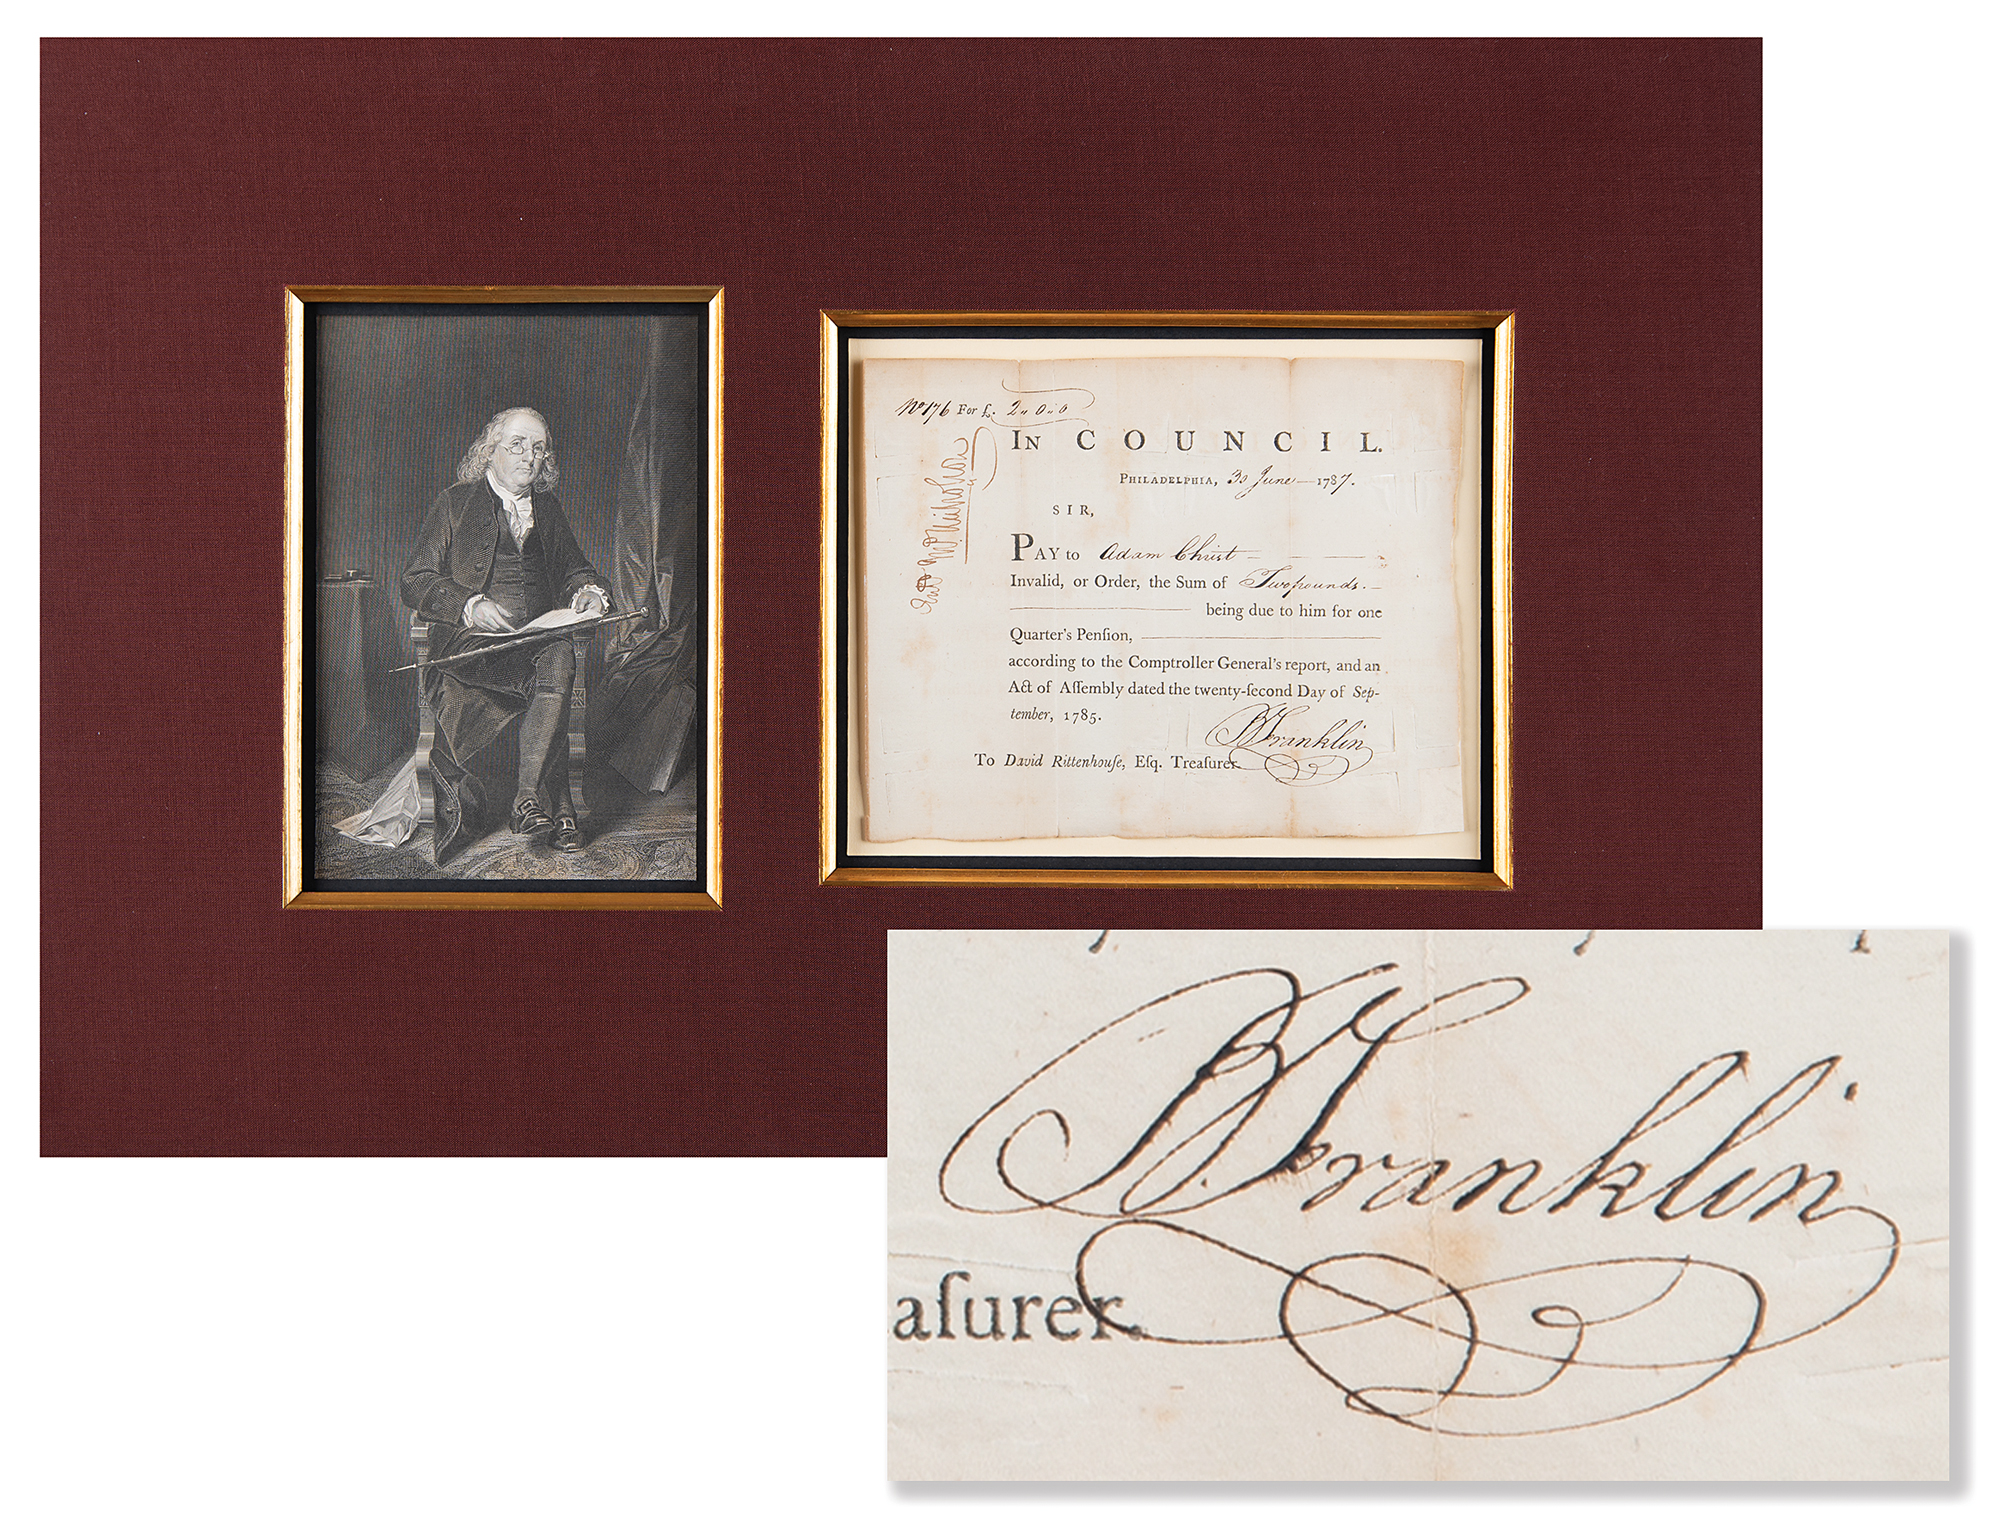 No 176 For £. 2 " 0 " 0
IN COUNCIL.
PHILADELPHIA, 30 June 1787.
SIR,
PAY to Adam Christ
Invalid, or Order, the Sum of Two pounds.
being due to him for one
Quarter's Penſion,
according to the Comptroller General's report, and an
Act of Aſſembly dated the twenty-ſecond Day of Sep-
tember, 1785.
B Franklin
To David Rittenhouſe, Eſq. Treaſurer.
Nicholson
B Franklin
aſurer.